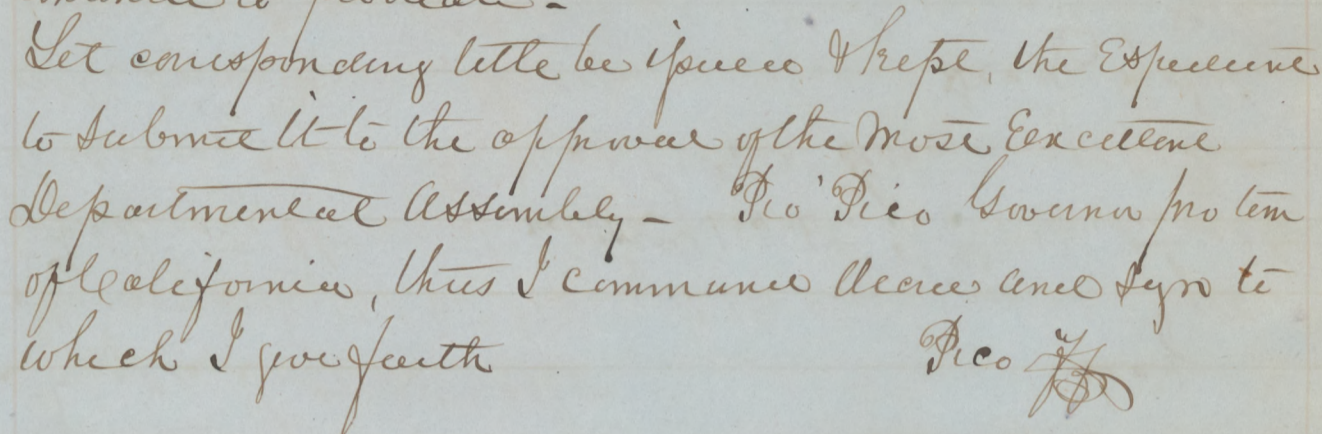 Let corresponding title be issued & kept, the Expedient
to submit it to the approval of the Most Excellent
Departmental Assembly – Pio Pico Governor pro tem
of California, thus I command decree and sign to
which I give faith Pico